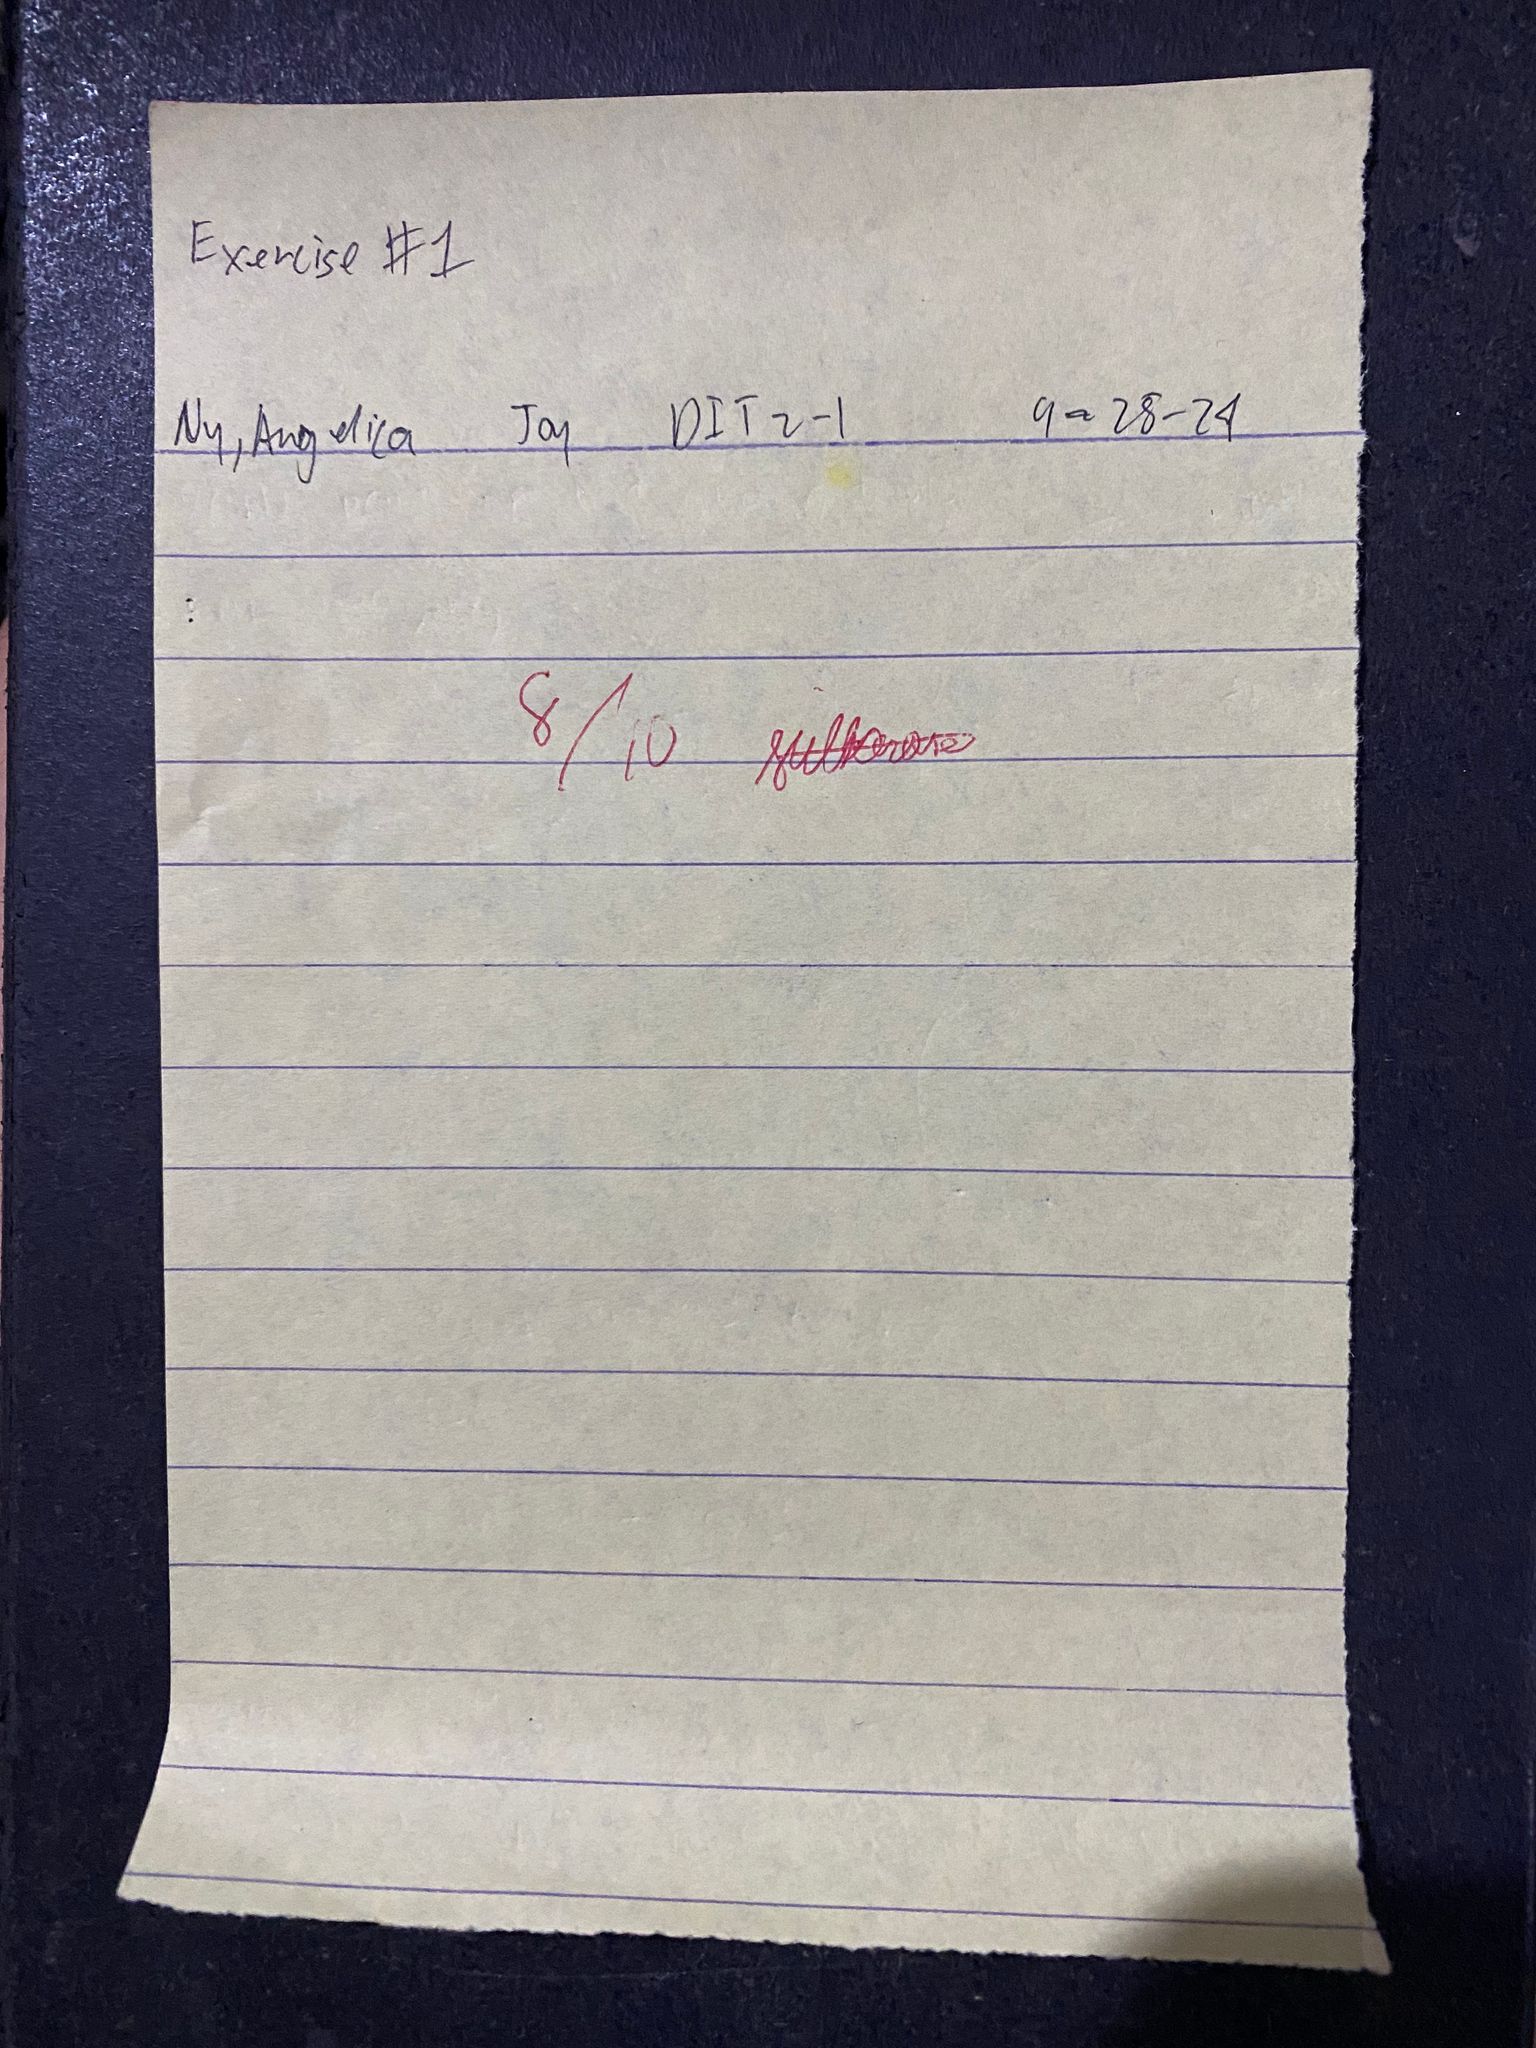 Exercise #1
Ny, Angelica Joy DIT 2-1 9-28-24
8/10